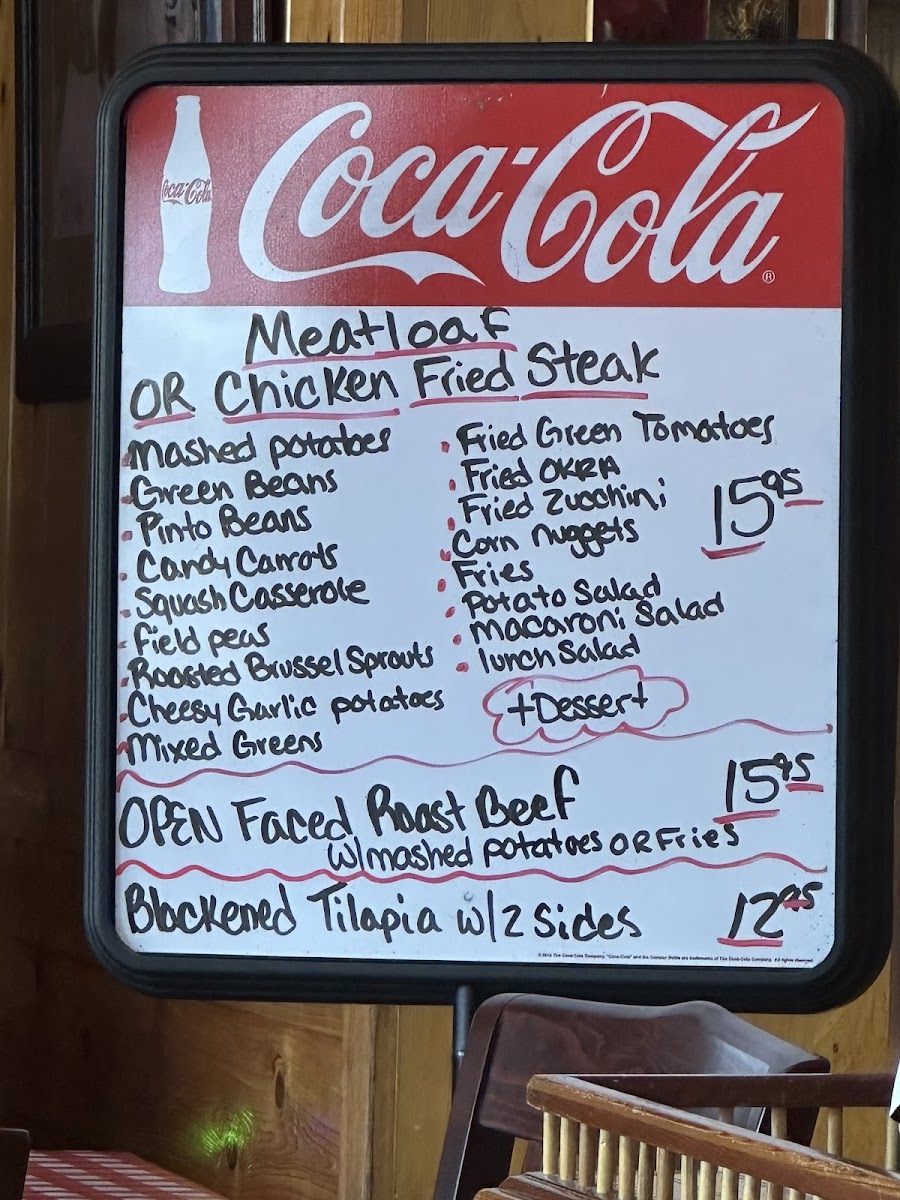 Coca-Cola
Coca-Cola®
Meatloaf
OR Chicken Fried Steak
Mashed potatoes
Green Beans
Pinto Beans
Candy Carrots
Squash Casserole
Field peas
Roasted Brussel Sprouts
Cheesy Garlic potatoes
Mixed Greens
Fried Green Tomatoes
Fried OKRA
Fried Zucchini
Corn nuggets
Fries
Potato Salad
Macaroni Salad
lunch Salad
15.95
+Dessert
OPEN Faced Roast Beef 15.95
w/mashed potatoes OR Fries
Blackened Tilapia w/2 Sides 12.95